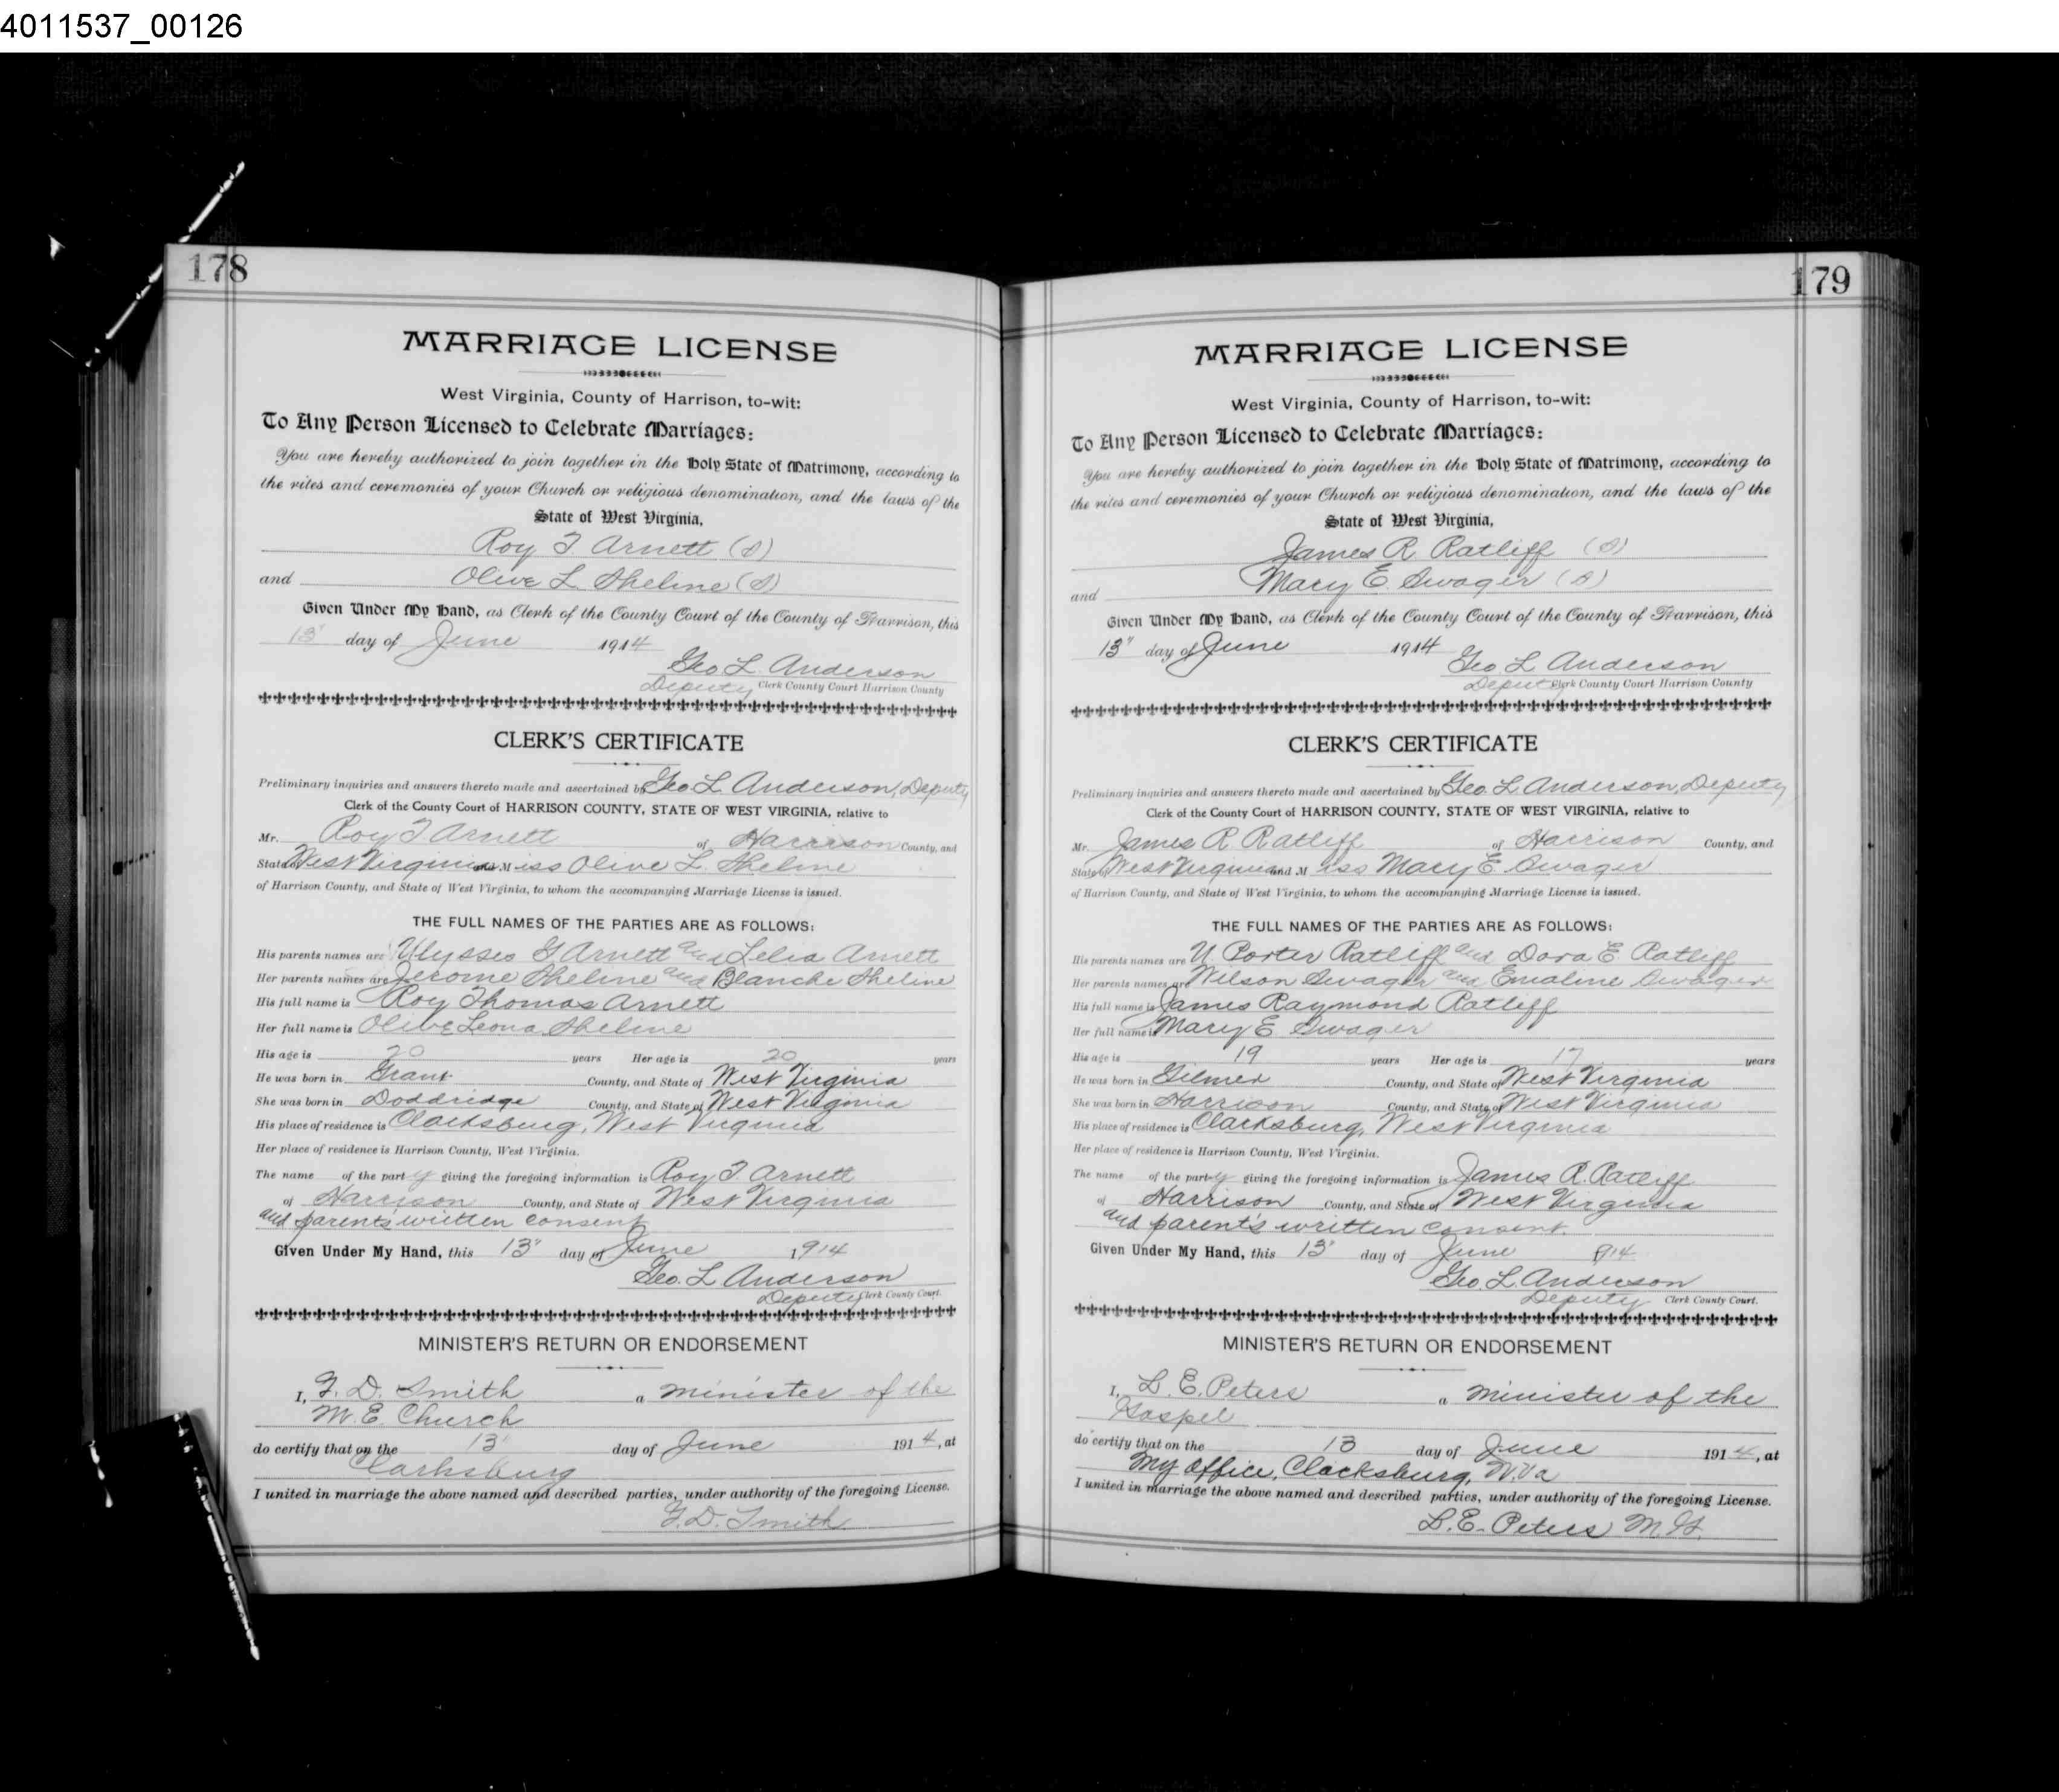 4011537_00126
178
MARRIAGE LICENSE
West Virginia, County of Harrison, to-wit:
To Any Person Licensed to Celebrate Marriages:
You are hereby authorized to join together in the Holy State of Matrimony, according to
the rites and ceremonies of your Church or religious denomination, and the laws of the
State of West Virginia,
Roy T Arnett (S)
and Olive L Sheline (S)
Given Under My Hand, as Clerk of the County Court of the County of Harrison, this
13" day of June 1914
Geo L Anderson
Deputy Clerk County Court Harrison County
CLERK'S CERTIFICATE
Preliminary inquiries and answers thereto made and ascertained by Geo L Anderson, Deputy
Clerk of the County Court of HARRISON COUNTY, STATE OF WEST VIRGINIA, relative to
Mr. Roy T Arnett of Harrison County, and
State of West Virginia and Miss Olive L. Sheline
of Harrison County, and State of West Virginia, to whom the accompanying Marriage License is issued.
THE FULL NAMES OF THE PARTIES ARE AS FOLLOWS:
His parents names are Ulysses G Arnett and Lelia Arnett
Her parents names are Jerome Sheline and Blanche Sheline
His full name is Roy Thomas Arnett
Her full name is Olive Leona Sheline
His age is 20 years Her age is 20 years
He was born in Grant County, and State of West Virginia
She was born in Doddridge County, and State of West Virginia
His place of residence is Clarksburg, West Virginia
Her place of residence is Harrison County, West Virginia.
The name of the party giving the foregoing information is Roy T. Arnett
of Harrison County, and State of West Virginia
and parents written consent
Given Under My Hand, this 13" day of June 1914
Geo. L Anderson
Deputy Clerk County Court.
MINISTER'S RETURN OR ENDORSEMENT
I, F. D. Smith a minister of the
M. E. Church
do certify that on the 13" day of June 1914, at
Clarksburg
I united in marriage the above named and described parties, under authority of the foregoing License.
F. D. Smith
179
MARRIAGE LICENSE
West Virginia, County of Harrison, to-wit:
To Any Person Licensed to Celebrate Marriages:
You are hereby authorized to join together in the Holy State of Matrimony, according to
the rites and ceremonies of your Church or religious denomination, and the laws of the
State of West Virginia,
James R. Ratliff (S)
and Mary E. Swager (S)
Given Under My Hand, as Clerk of the County Court of the County of Harrison, this
13" day of June 1914
Geo L Anderson
Deputy Clerk County Court Harrison County
CLERK'S CERTIFICATE
Preliminary inquiries and answers thereto made and ascertained by Geo. L Anderson, Deputy
Clerk of the County Court of HARRISON COUNTY, STATE OF WEST VIRGINIA, relative to
Mr. James R Ratliff of Harrison County, and
State of West Virginia and Miss Mary E. Swager
of Harrison County, and State of West Virginia, to whom the accompanying Marriage License is issued.
THE FULL NAMES OF THE PARTIES ARE AS FOLLOWS:
His parents names are U Porter Ratliff and Dora E Ratliff
Her parents names are Wilson Swager and Emaline Swager
His full name is James Raymond Ratliff
Her full name is Mary E Swager
His age is 19 years Her age is 17 years
He was born in Gilmer County, and State of West Virginia
She was born in Harrison County, and State of West Virginia
His place of residence is Clarksburg, West Virginia
Her place of residence is Harrison County, West Virginia.
The name of the party giving the foregoing information is James R. Ratliff
of Harrison County, and State of West Virginia
and parent's written consent.
Given Under My Hand, this 13" day of June 1914
Geo L. Anderson
Deputy Clerk County Court.
MINISTER'S RETURN OR ENDORSEMENT
I, L. E. Peters a minister of the
Gospel
do certify that on the 13 day of June 1914, at
My Office, Clarksburg, W. Va
I united in marriage the above named and described parties, under authority of the foregoing License.
L. E. Peters M. G.